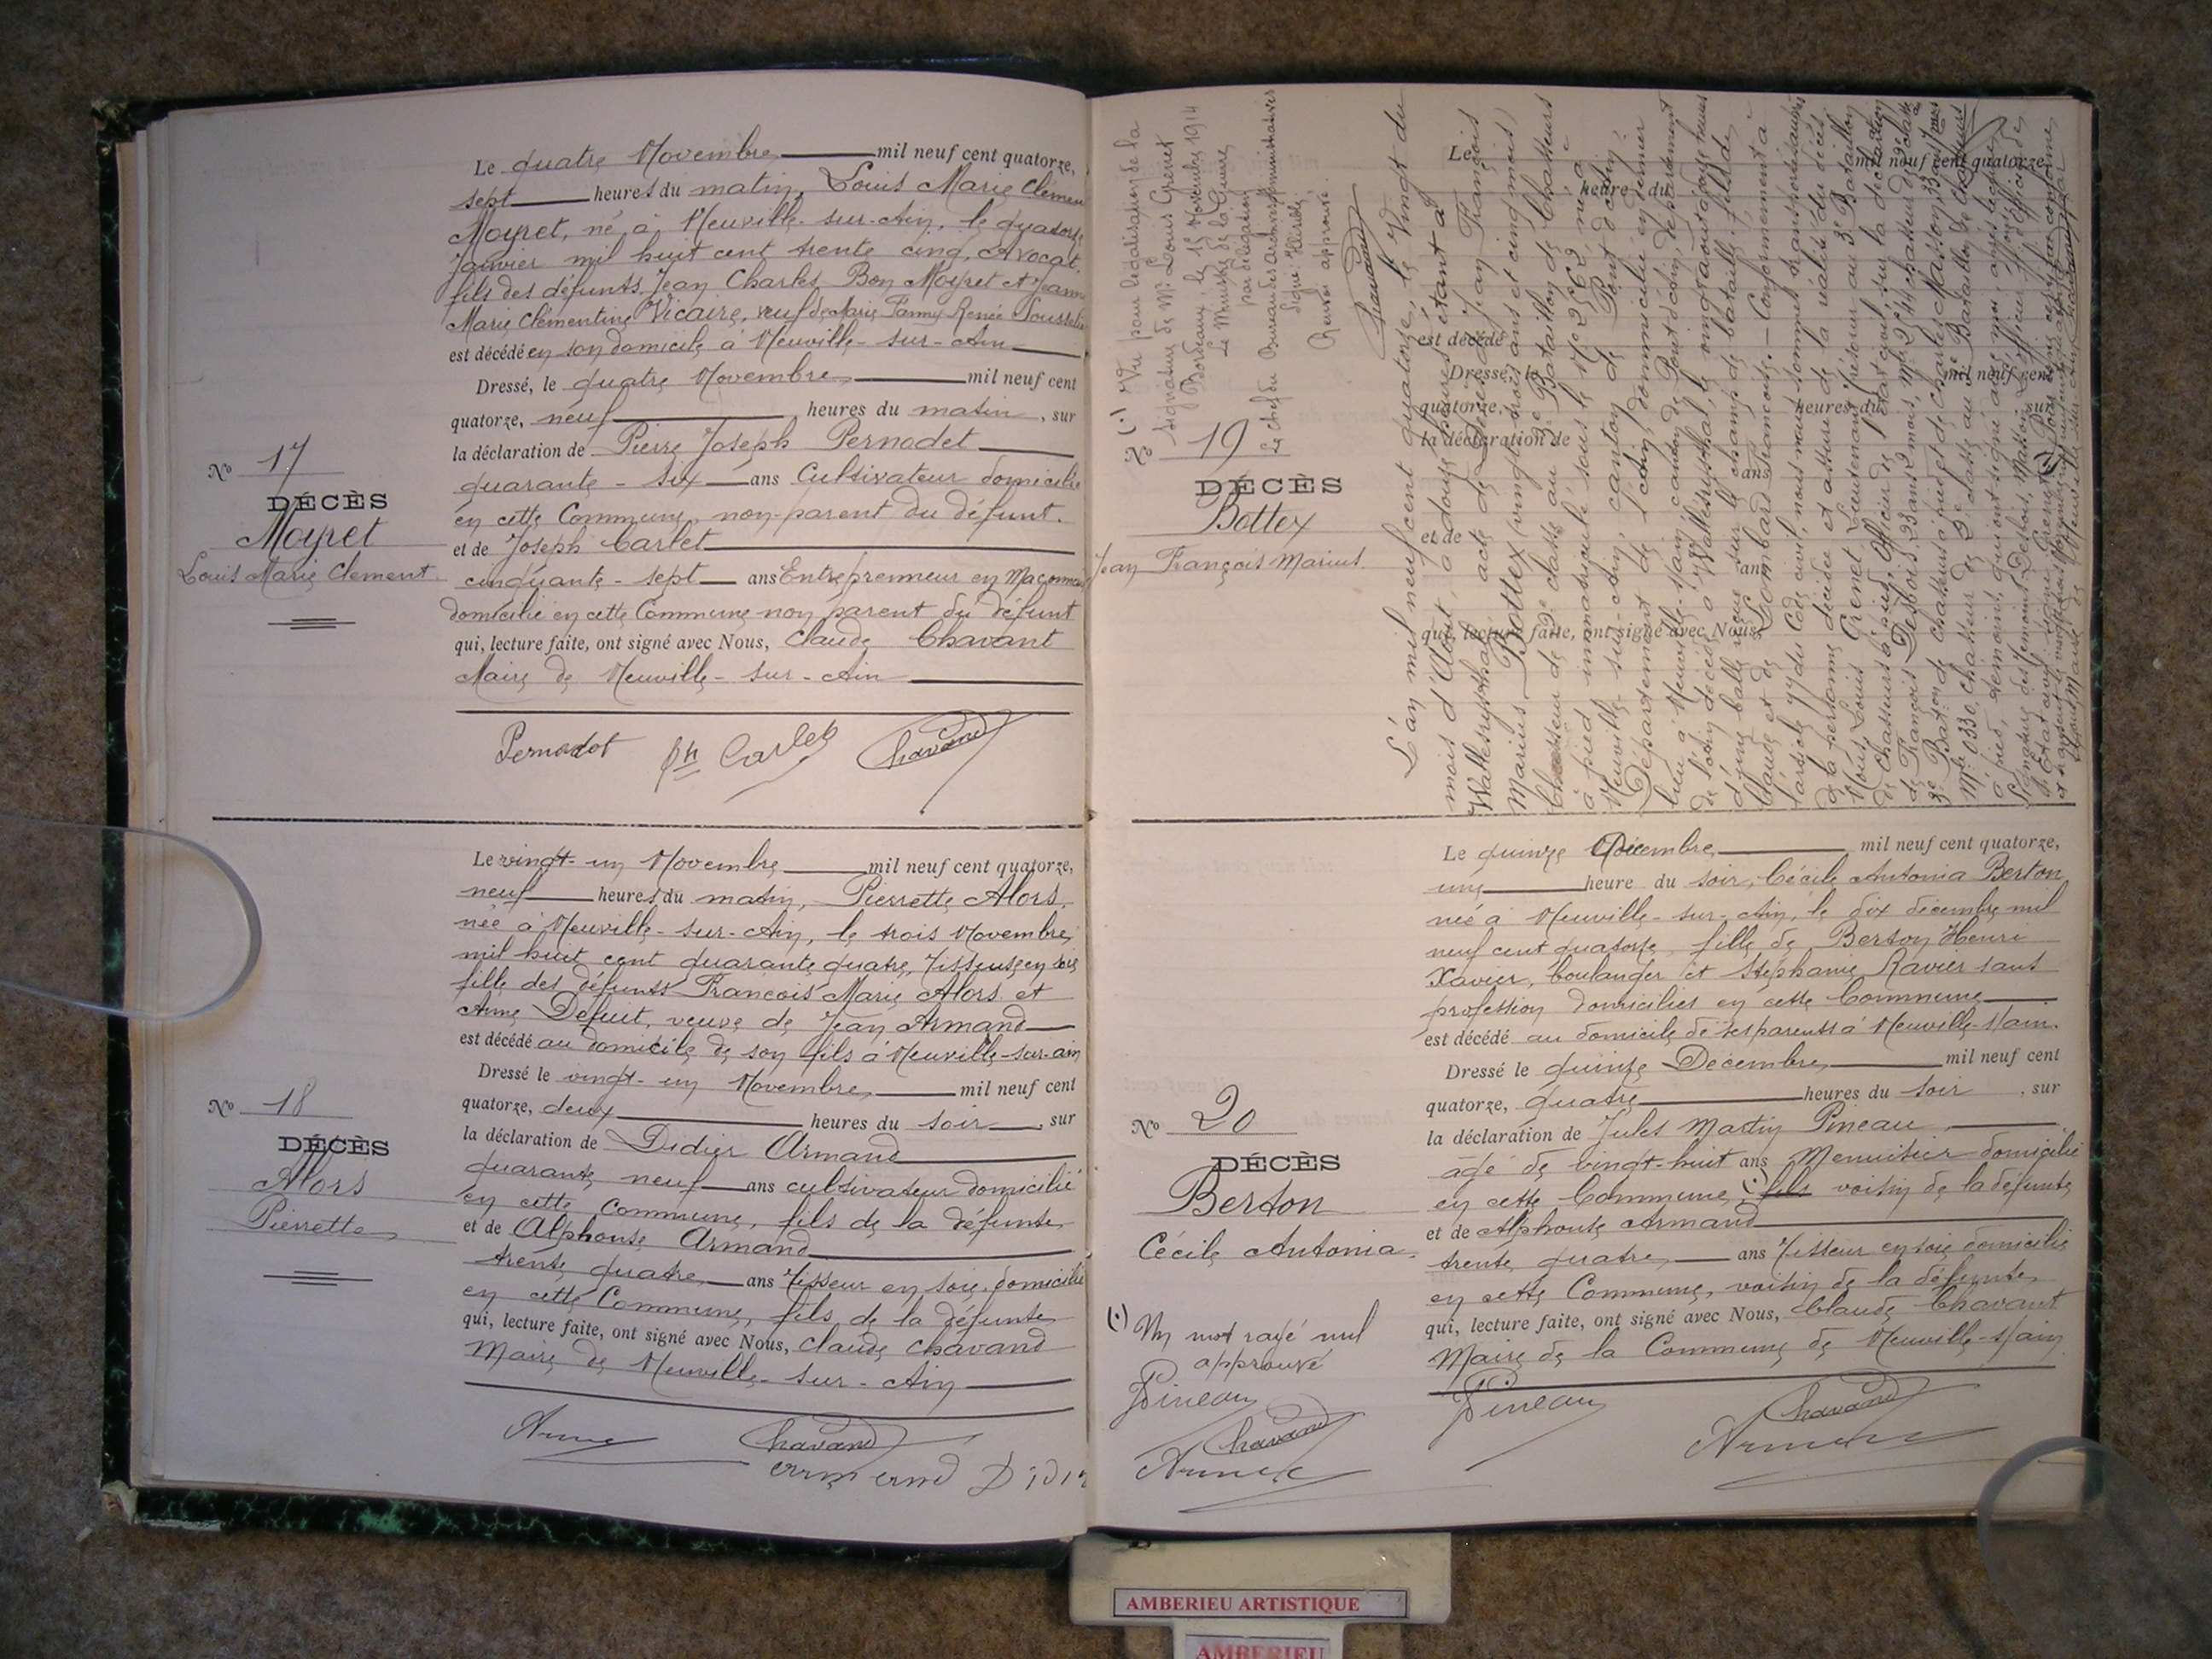 Le quatre Novembre mil neuf cent quatorze,
sept heures du matin, Louis Marie Clémen
Moyret, né à Neuville-sur-Ain, le quatorze
Janvier mil huit cent trente cinq, Avocat.
fils des défunts Jean Charles Bon Moyret et Jeanne
Marie Clémentine Vicaire, veuf de Marie Fanny Renée
est décédé en son domicile à Neuville-sur-Ain
Dressé, le quatre Novembre mil neuf cent
quatorze, neuf heures du matin, sur
la déclaration de Pierre Joseph Pernodet
quarante-six ans Cultivateur domicilié
en cette Commune, non-parent du défunt.
et de Joseph Carlet
cinquante-sept ans Entreprenneur en Maçonnerie
domicilié en cette Commune non parent du défunt
qui, lecture faite, ont signé avec Nous, Claude Chavant
Maire de Neuville-sur-Ain
Pernodet Carlet Chavand
No 17
DÉCÈS
Moyret
Louis Marie Clement
Le vingt-un Novembre mil neuf cent quatorze,
neuf heures du matin, Pierrette Alors,
née à Neuville-sur-Ain, le trois Novembre
mil huit cent quarante quatre, Tisseuse en soie
fille des défunts François Marie Alors et
Anne Defuit, veuve de Jean Armand
est décédé au domicile de son fils à Neuville-sur-ain
Dressé le vingt-un Novembre mil neuf cent
quatorze, deux heures du soir, sur
la déclaration de Didier Armand
quarante neuf ans cultivateur domicilié
en cette Commune, fils de la défunte
et de Alphonse Armand
trente quatre ans Tisseur en soie, domicilié
en cette Commune, fils de la défunte
qui, lecture faite, ont signé avec Nous, Claude Chavand
Maire de Neuville-sur-Ain
Chavand
No 18
DÉCÈS
Alors
Pierrette
(1) Vu pour légalisation de la
signature de Mr. Louis Grenet
Bordeaux, le 15 Novembre 1914
Le Ministre de la Guerre
par délégation
Le Chef du Bureau des archives administratives
Renvoi approuvé.
Chavand
No 19
DÉCÈS
Bottex
Jean François Marius.
L'an mil neuf cent quatorze, le Vingt du
mois d'Août, à douze heures étant à
acte de Décès de Jean François
Marius Bottex (vingt-trois ans et cinq mois)
Chasseur de 2e classe au 3e Bataillon de Chasseurs
à pied, immatriculé sous le No né à
Neuville-sur-Ain, canton de Pont d'Ain,
Département de l'Ain, domicilié en dernier
lieu à Neuville-s-Ain, canton de Pont d'Ain, Département
de l'Ain, décédé à le vingt août à
d'une balle reçue sur le champ de bataille, fils de
Claude et de Lombard Françoise. Conformément à
l'article 77 du Code civil, nous nous sommes transporté auprès
de la personne décédée et assuré de la réalité du décès
Nous, Louis Grenet, Lieutenant trésorier au 3e Bataillon
de Chasseurs à pied, Officier de l'état civil, sur la déclaration
de François Desbois, 23 ans 2 mois,
3e Baton de chasseurs à pied et de Charles Masson,
chasseur de 2e classe au 3e Bataillon de chasseurs
à pied, témoins, qui ont signé avec moi après lecture.
Signature des témoins Desbois, Masson
Le mil neuf cent quatorze,
heure du
est décédé
Dressé, le mil neuf cent
quatorze, heures du sur
la déclaration de
ans
et de
ans
qui, lecture faite, ont signé avec Nous,
Le quinze Décembre mil neuf cent quatorze,
une heure du soir, Cécile Antonia Berton
née à Neuville-sur-Ain, le dix décembre mil
neuf cent quatorze, fille de Berton Henri
Xavier, boulanger et Stéphanie Ravier sans
profession domiciliés en cette Commune
est décédé au domicile de ses parents à Neuville-s/ain.
Dressé le quinze Décembre mil neuf cent
quatorze, quatre heures du soir, sur
la déclaration de Jules Martin Pineau
âgé de vingt-huit ans Menuisier domicilié
en cette Commune, (1) fils voisin de la défunte
et de Alphonse Armand
trente quatre ans Tisseur en soie domicilié
en cette Commune, voisin de la défunte
qui, lecture faite, ont signé avec Nous, Claude Chavant
Maire de la Commune de Neuville-s/ain
Pineau Chavand
No 20
DÉCÈS
Berton
Cécile Antonia.
(1) Un mot rayé nul
approuvé
Pineau
Chavand
AMBERIEU ARTISTIQUE
AMBERIEU